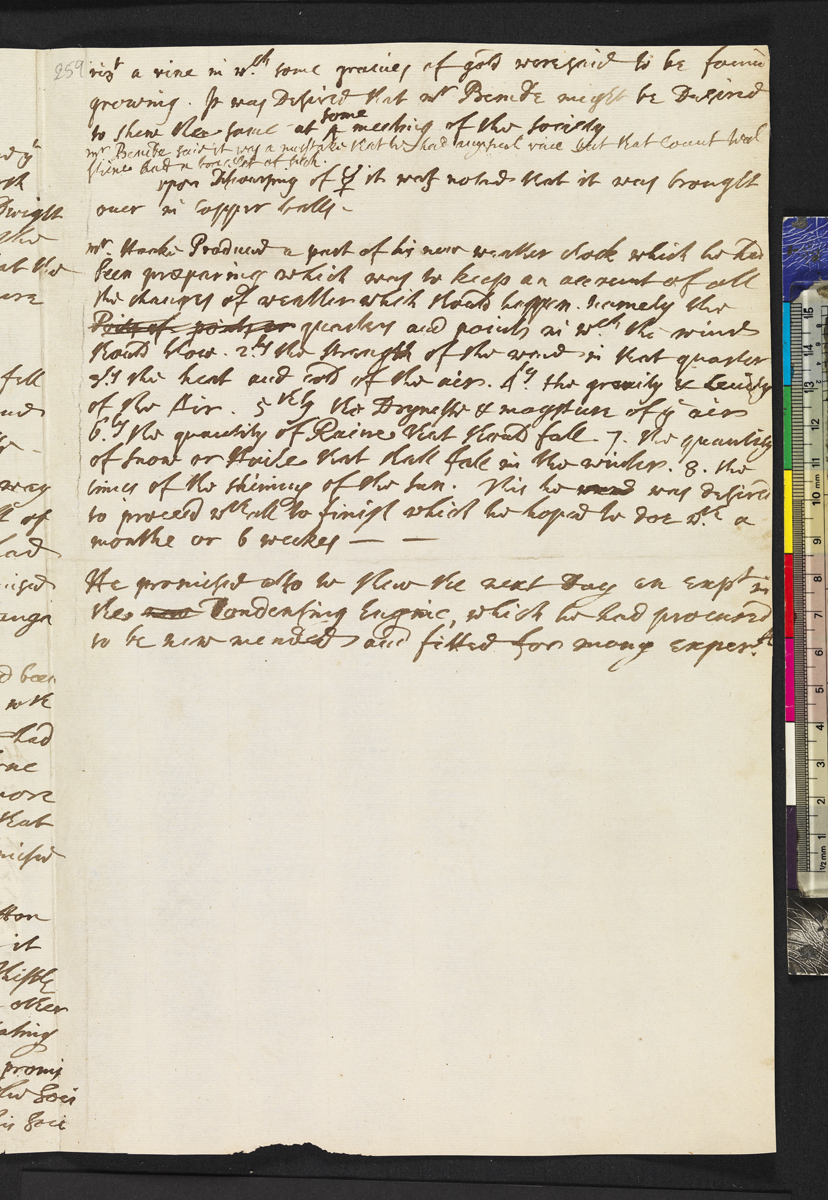 259
vizt a vine in wch some graines of gold were said to be found
growing. It was Desired that mr Bemde might be Desired
to shew the same at some meeting of the society
mr Bemde said it was a mistake that he had any such vine but that Count
had a bracelet of such.
upon Discoursing of ☿ it was noted that it was brought
over in Copper balls -
mr Hooke Produced a part of his new weather clock which he had
been præparing which was to keep an account of all
the changes of weather which should happen. namely the
quarters and points in wch the wind
should blow. 2ly the strength of the wind in that quarter
3ly the heat and cold of the air. 4ly the gravity & Levity
of the Air. 5thly the Drynesse & moysture of ye air
6ly the quantity of Raine that should fall 7. the quantity
of Snow or Haile that shall fall in the winter. 8. the
times of the shining of the Sun. This he was desired
to proceed wth all to finish which he hoped to doe wthin a
monthe or 6 weekes — —
He promised also to shew the next Day an expt in
the Condensing Engine, which he had procured
to be new mended and fitted for many experts
Dwight
the
fell
way
of
had
been
wth
had
more
that
it
other
promi
the Soci
his Soci
15
14
13
12
11
10
9
8
7
6
5
4
3
2
1
½ mm